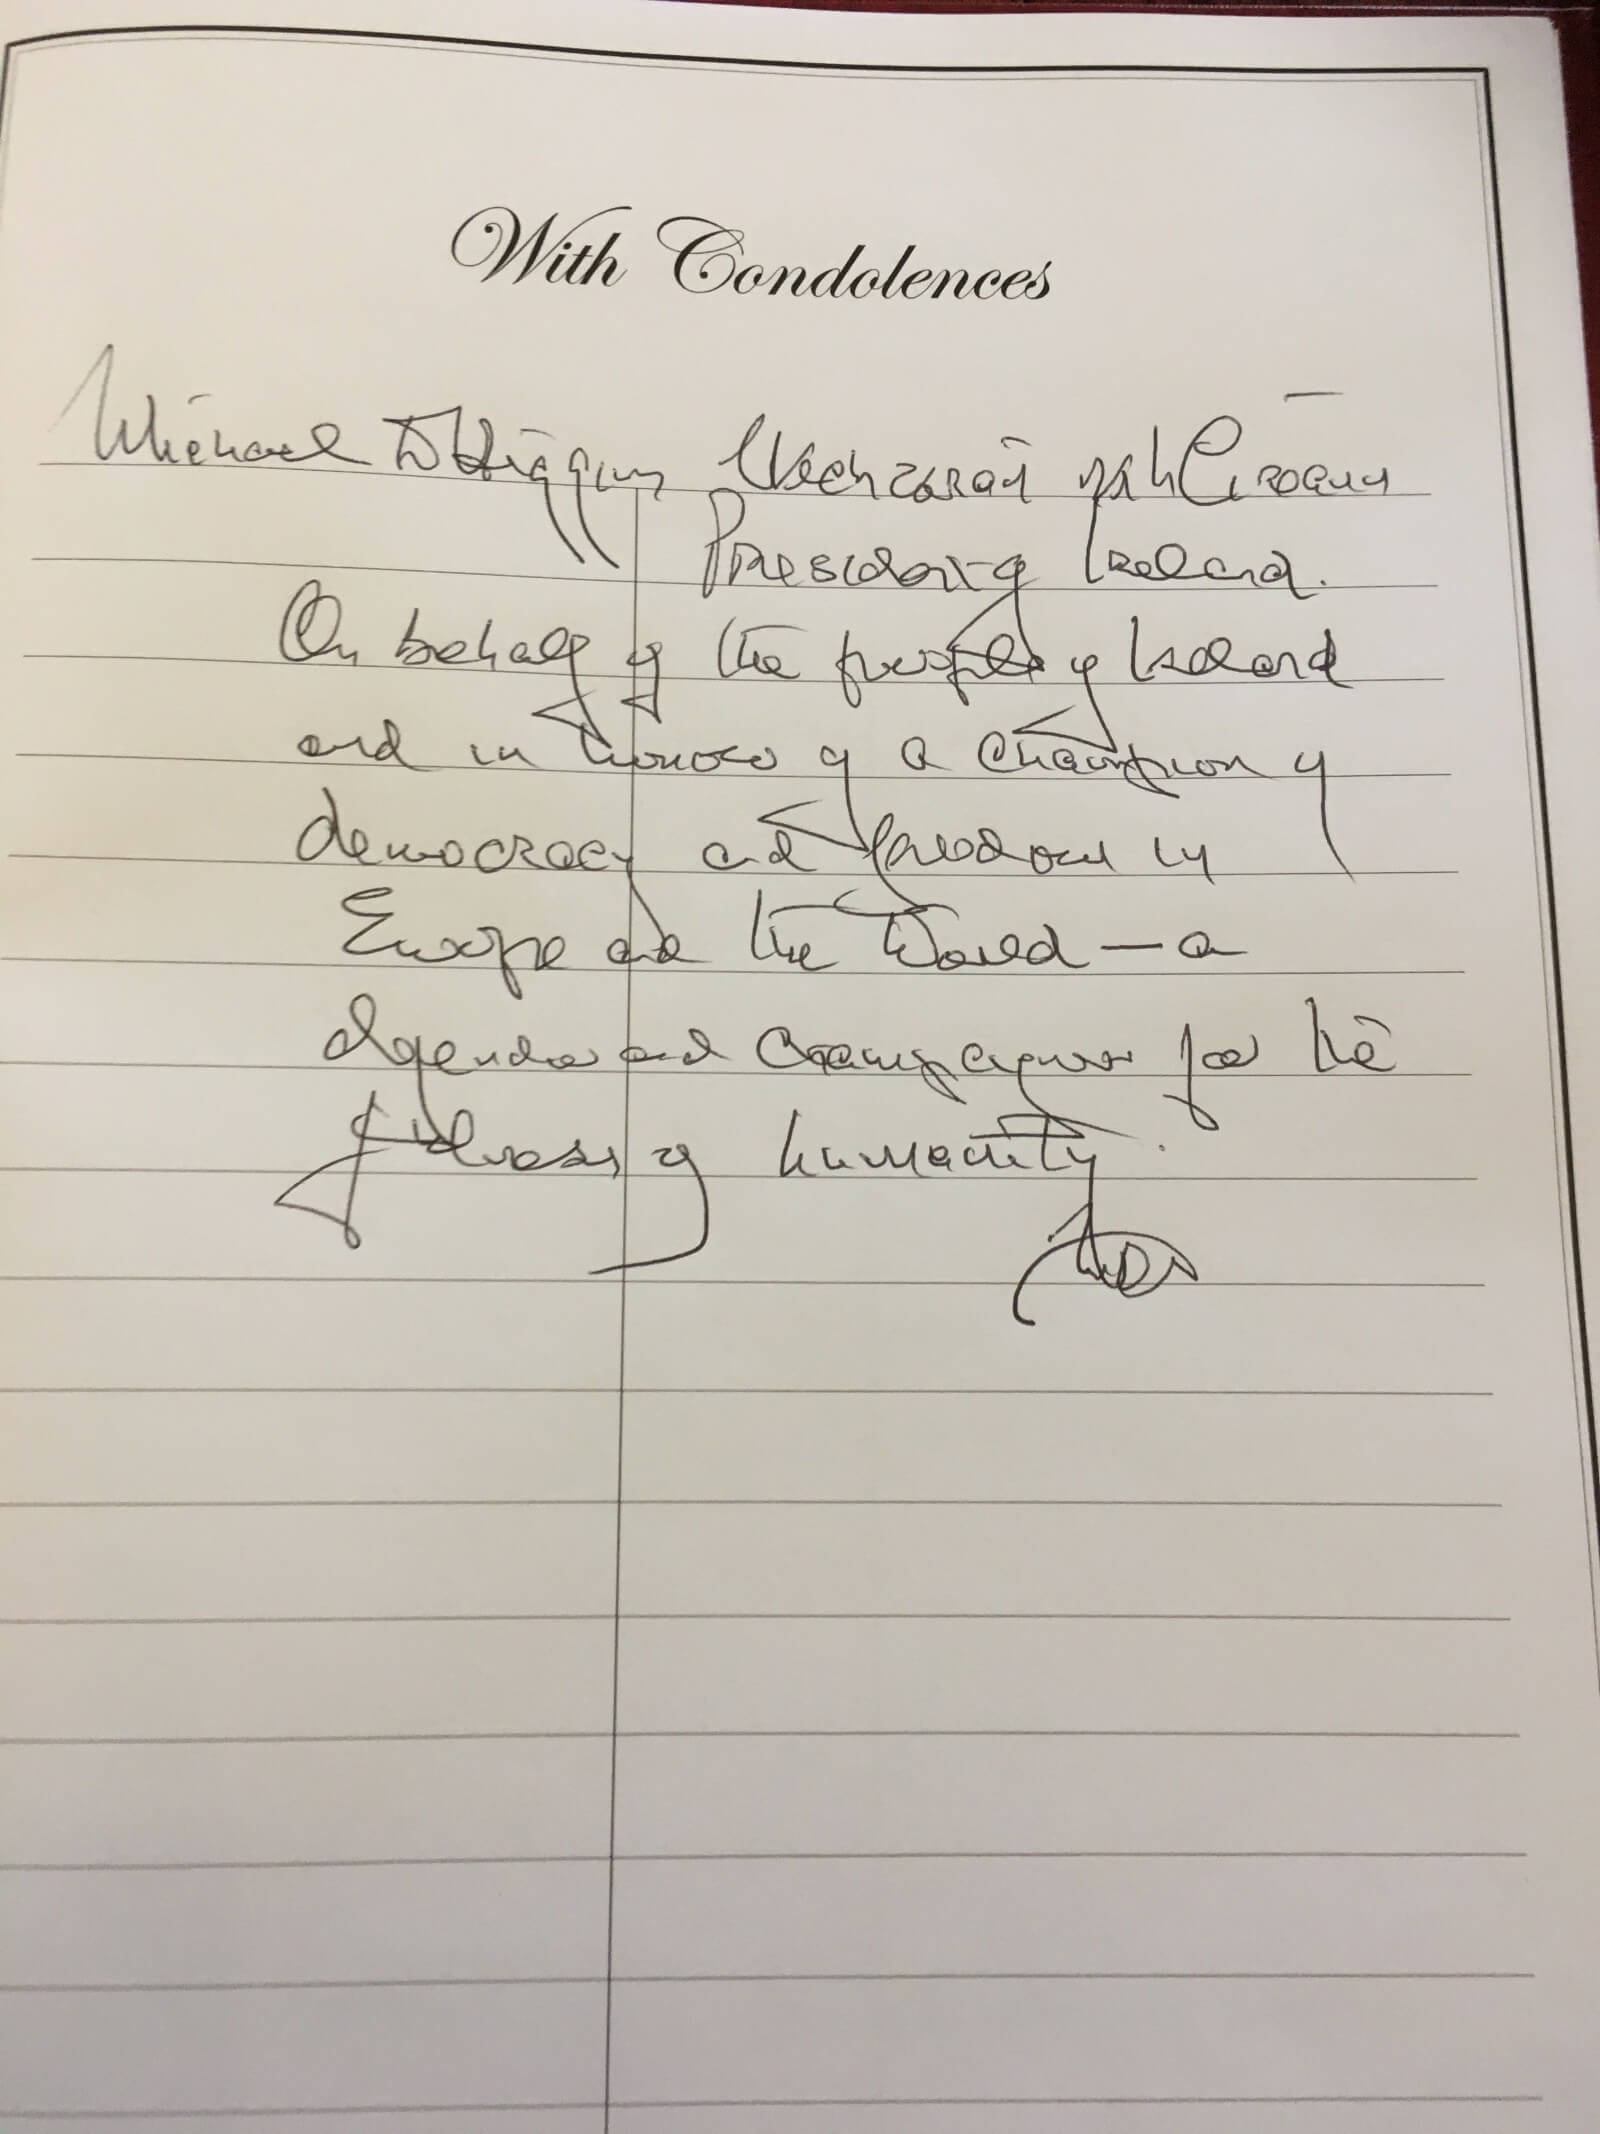 With Condolences
Michael D Higgins Uachtarán na hÉireann
President of Ireland.
On behalf of the people of Ireland
and in honour of a champion of
democracy and freedom in
Europe and the World — a
and campaigner for the
fulness of humanity.
MDH